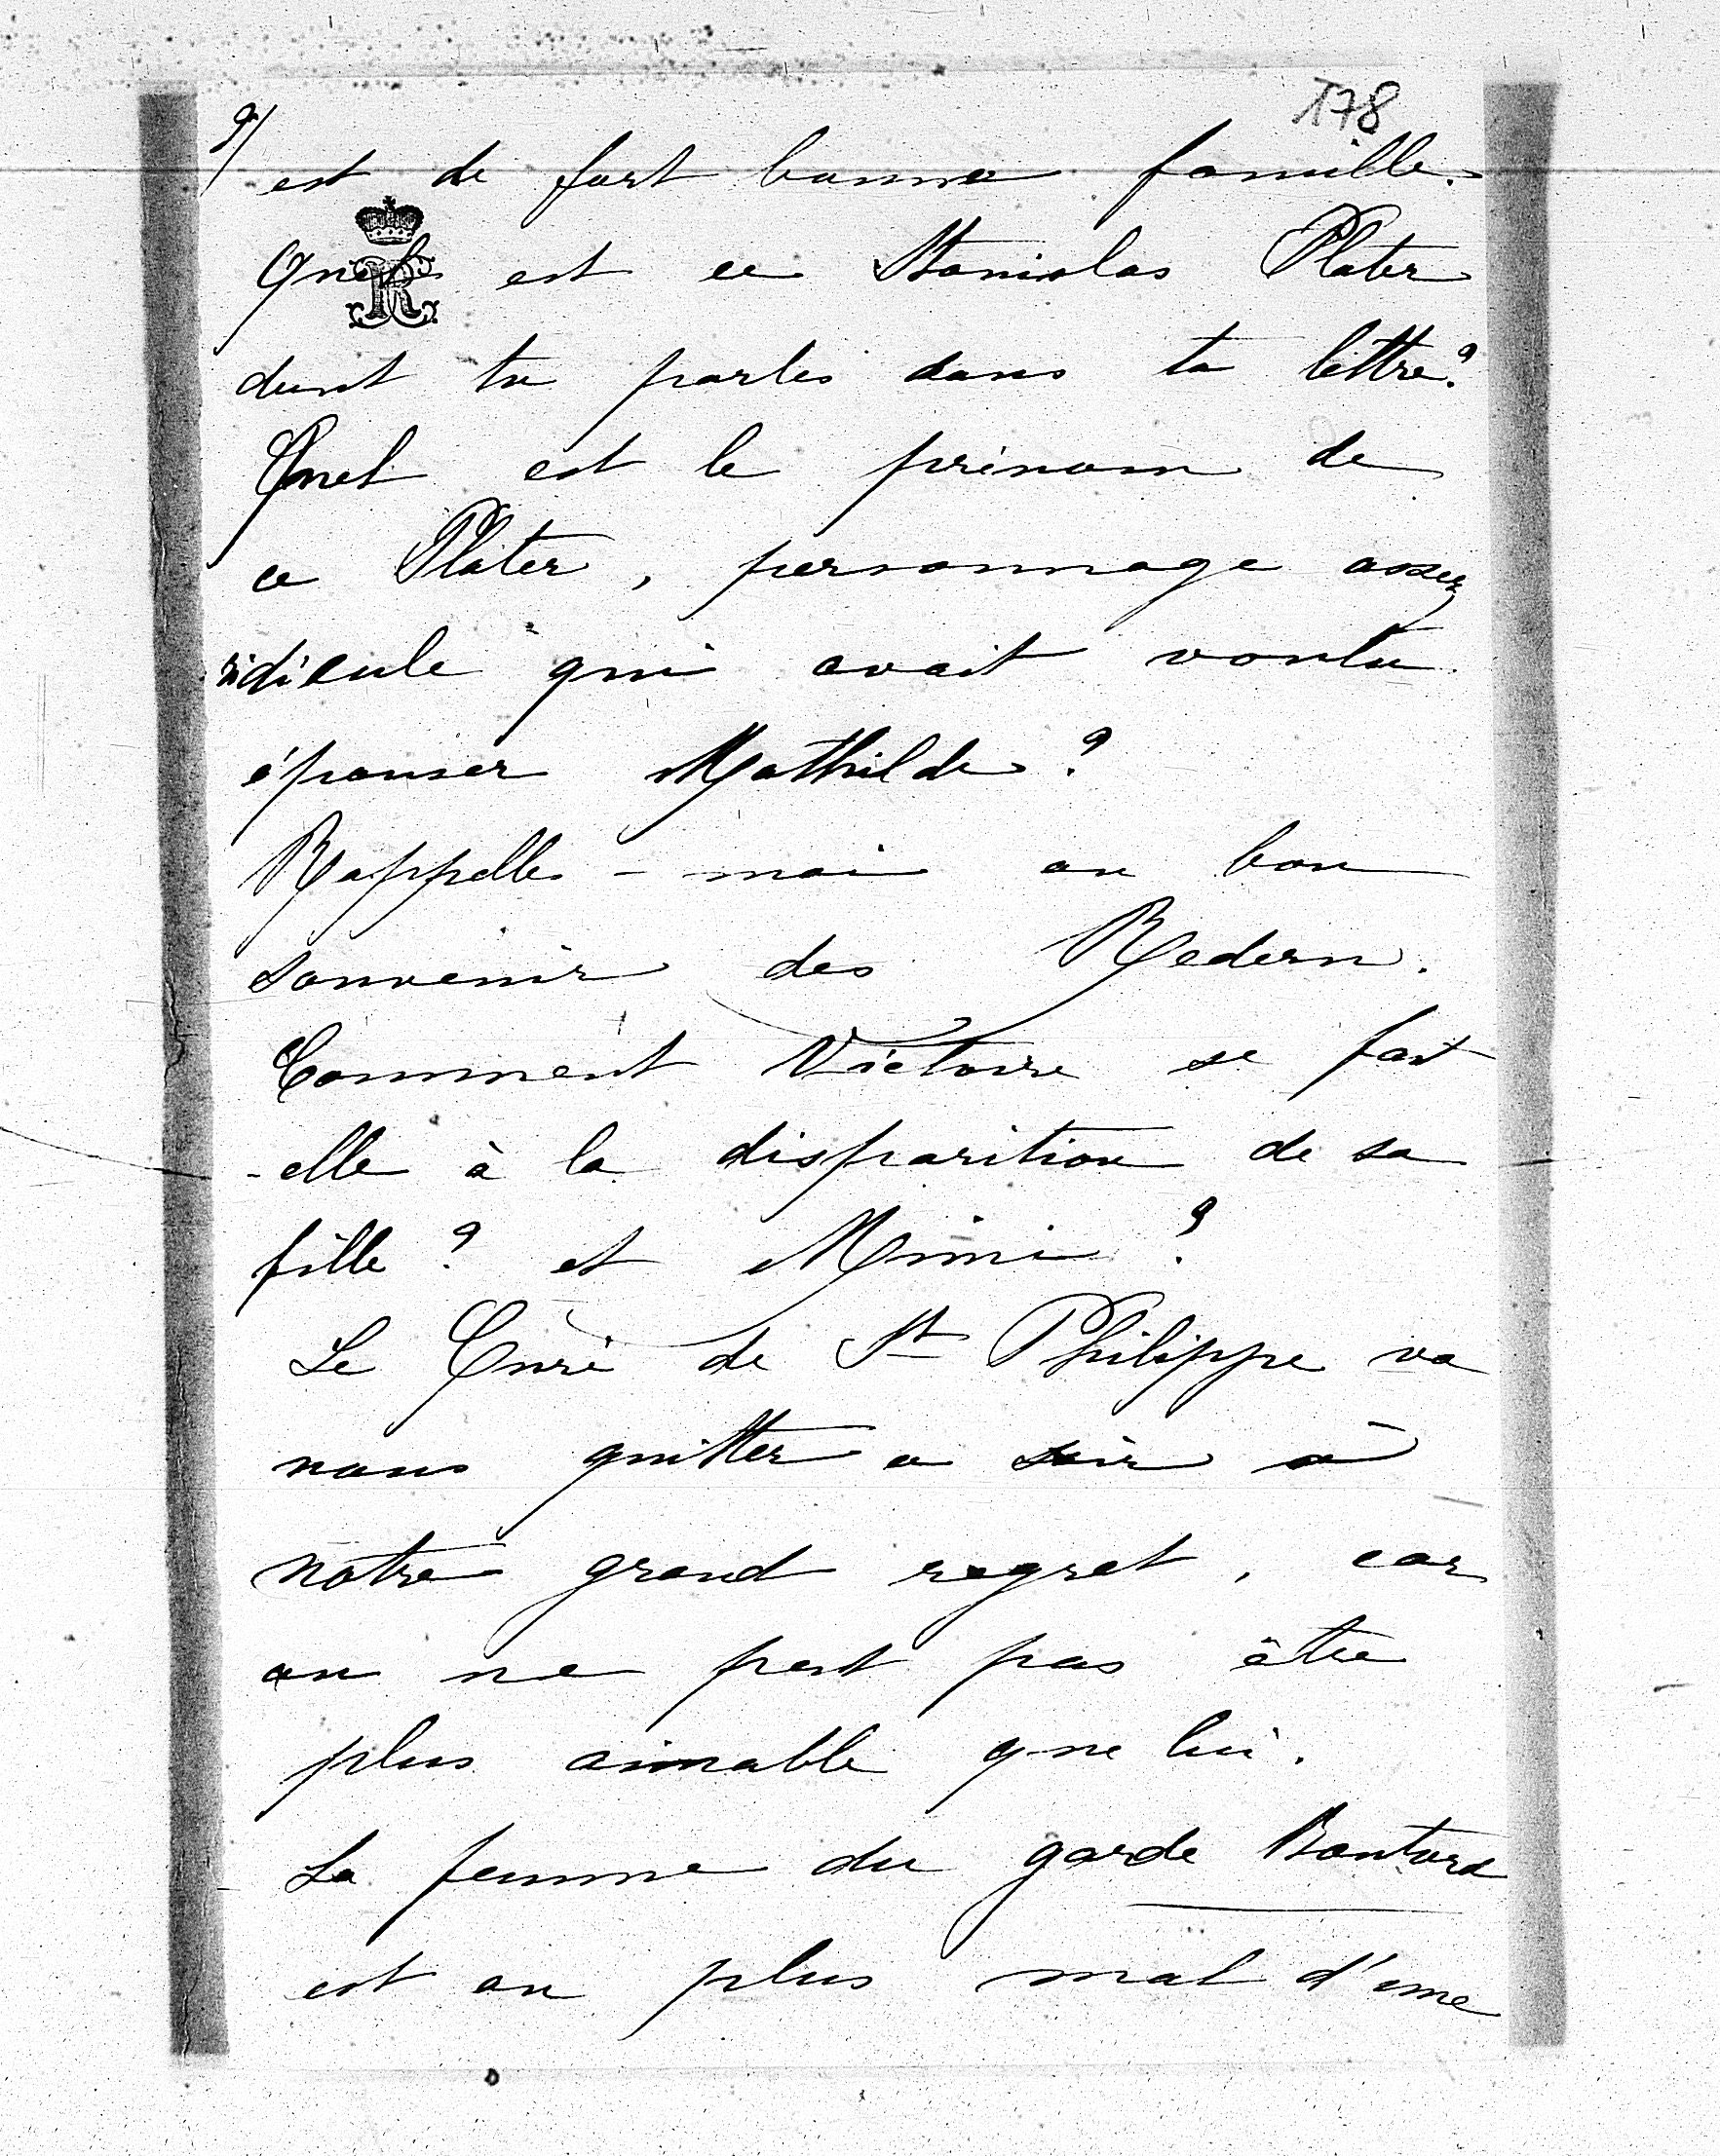 178
9/
est de fort bonne famille.
Quel est ce Stanislas Plater
dont tu parles dans ta lettre?
Quel est le prénom de
ce Plater, personnage assez
ridicule qui avait voulu
épouser Mathilde?
Rappelle-moi au bon
souvenir des Redern.
Comment Victoire se fait
-elle à la disparition de sa
fille? et Mimi?
Le Curé de St Philippe va
nous quitter ce soir à
notre grand regret, car
on ne peut pas être
plus aimable que lui.
La femme du garde Boutard
est au plus mal d'une